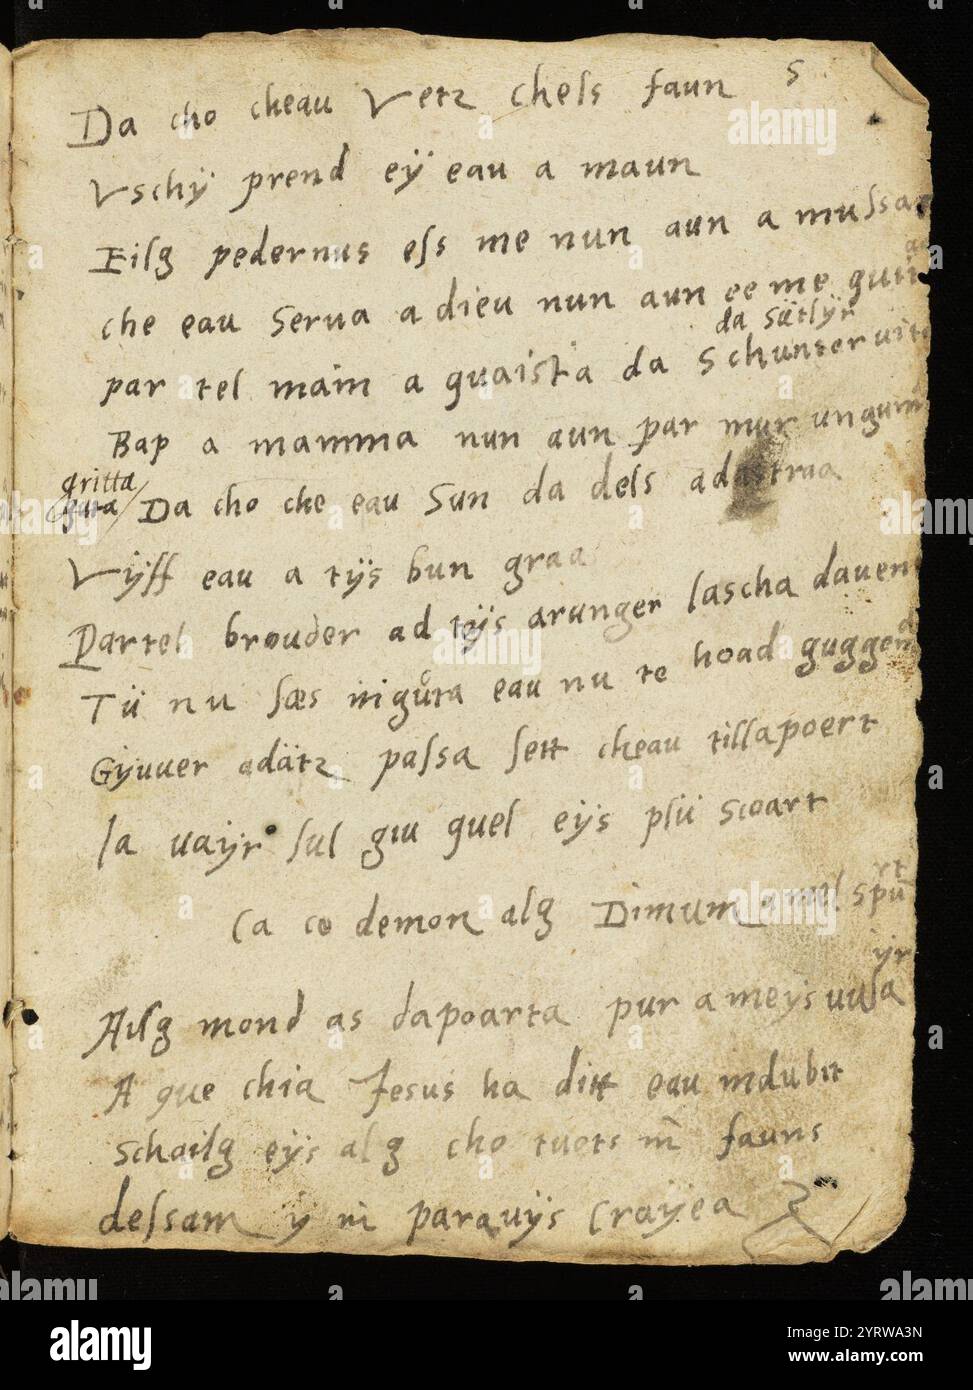 Da cho cheau Vetz chels faun 5
Vschÿ prend eÿ eau a maun
Eilg pedernus ess me nun aun a mussa
che eau Serua adieu nun aun ee me guti
da Sütlÿr
par tel main a guaista da Schunter
Bap a mamma nun aun par mur ungum
gritta
guta / Da cho che eau Sun da dels adastraa
Vÿff eau a tÿs bun graa
Partel brouder ad tÿs arunger lascha dauen
Tü nu sæs inigůta eau nu te hoad guggen
Gÿuuer adätz passa sett cheau tillapoert
la uaÿr sul giu quel eÿs plü scoart
Ca co demon alg Dimum
Ailg mond as dapoarta pur a meÿs
ÿr
A que chia Jesus ha ditt eau indubit
Schailg eÿs alg cho tuots in fauns
dessam ÿ in parauÿs craÿea
alamy
Image ID: 2YRWA3N
www.alamy.com